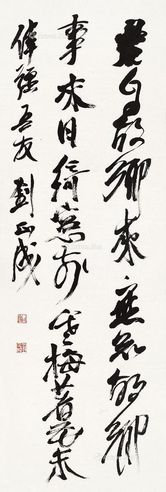 君自故鄉來應知故鄉
事來日綺窗前寒梅著花未
偉強吾友 劉正成